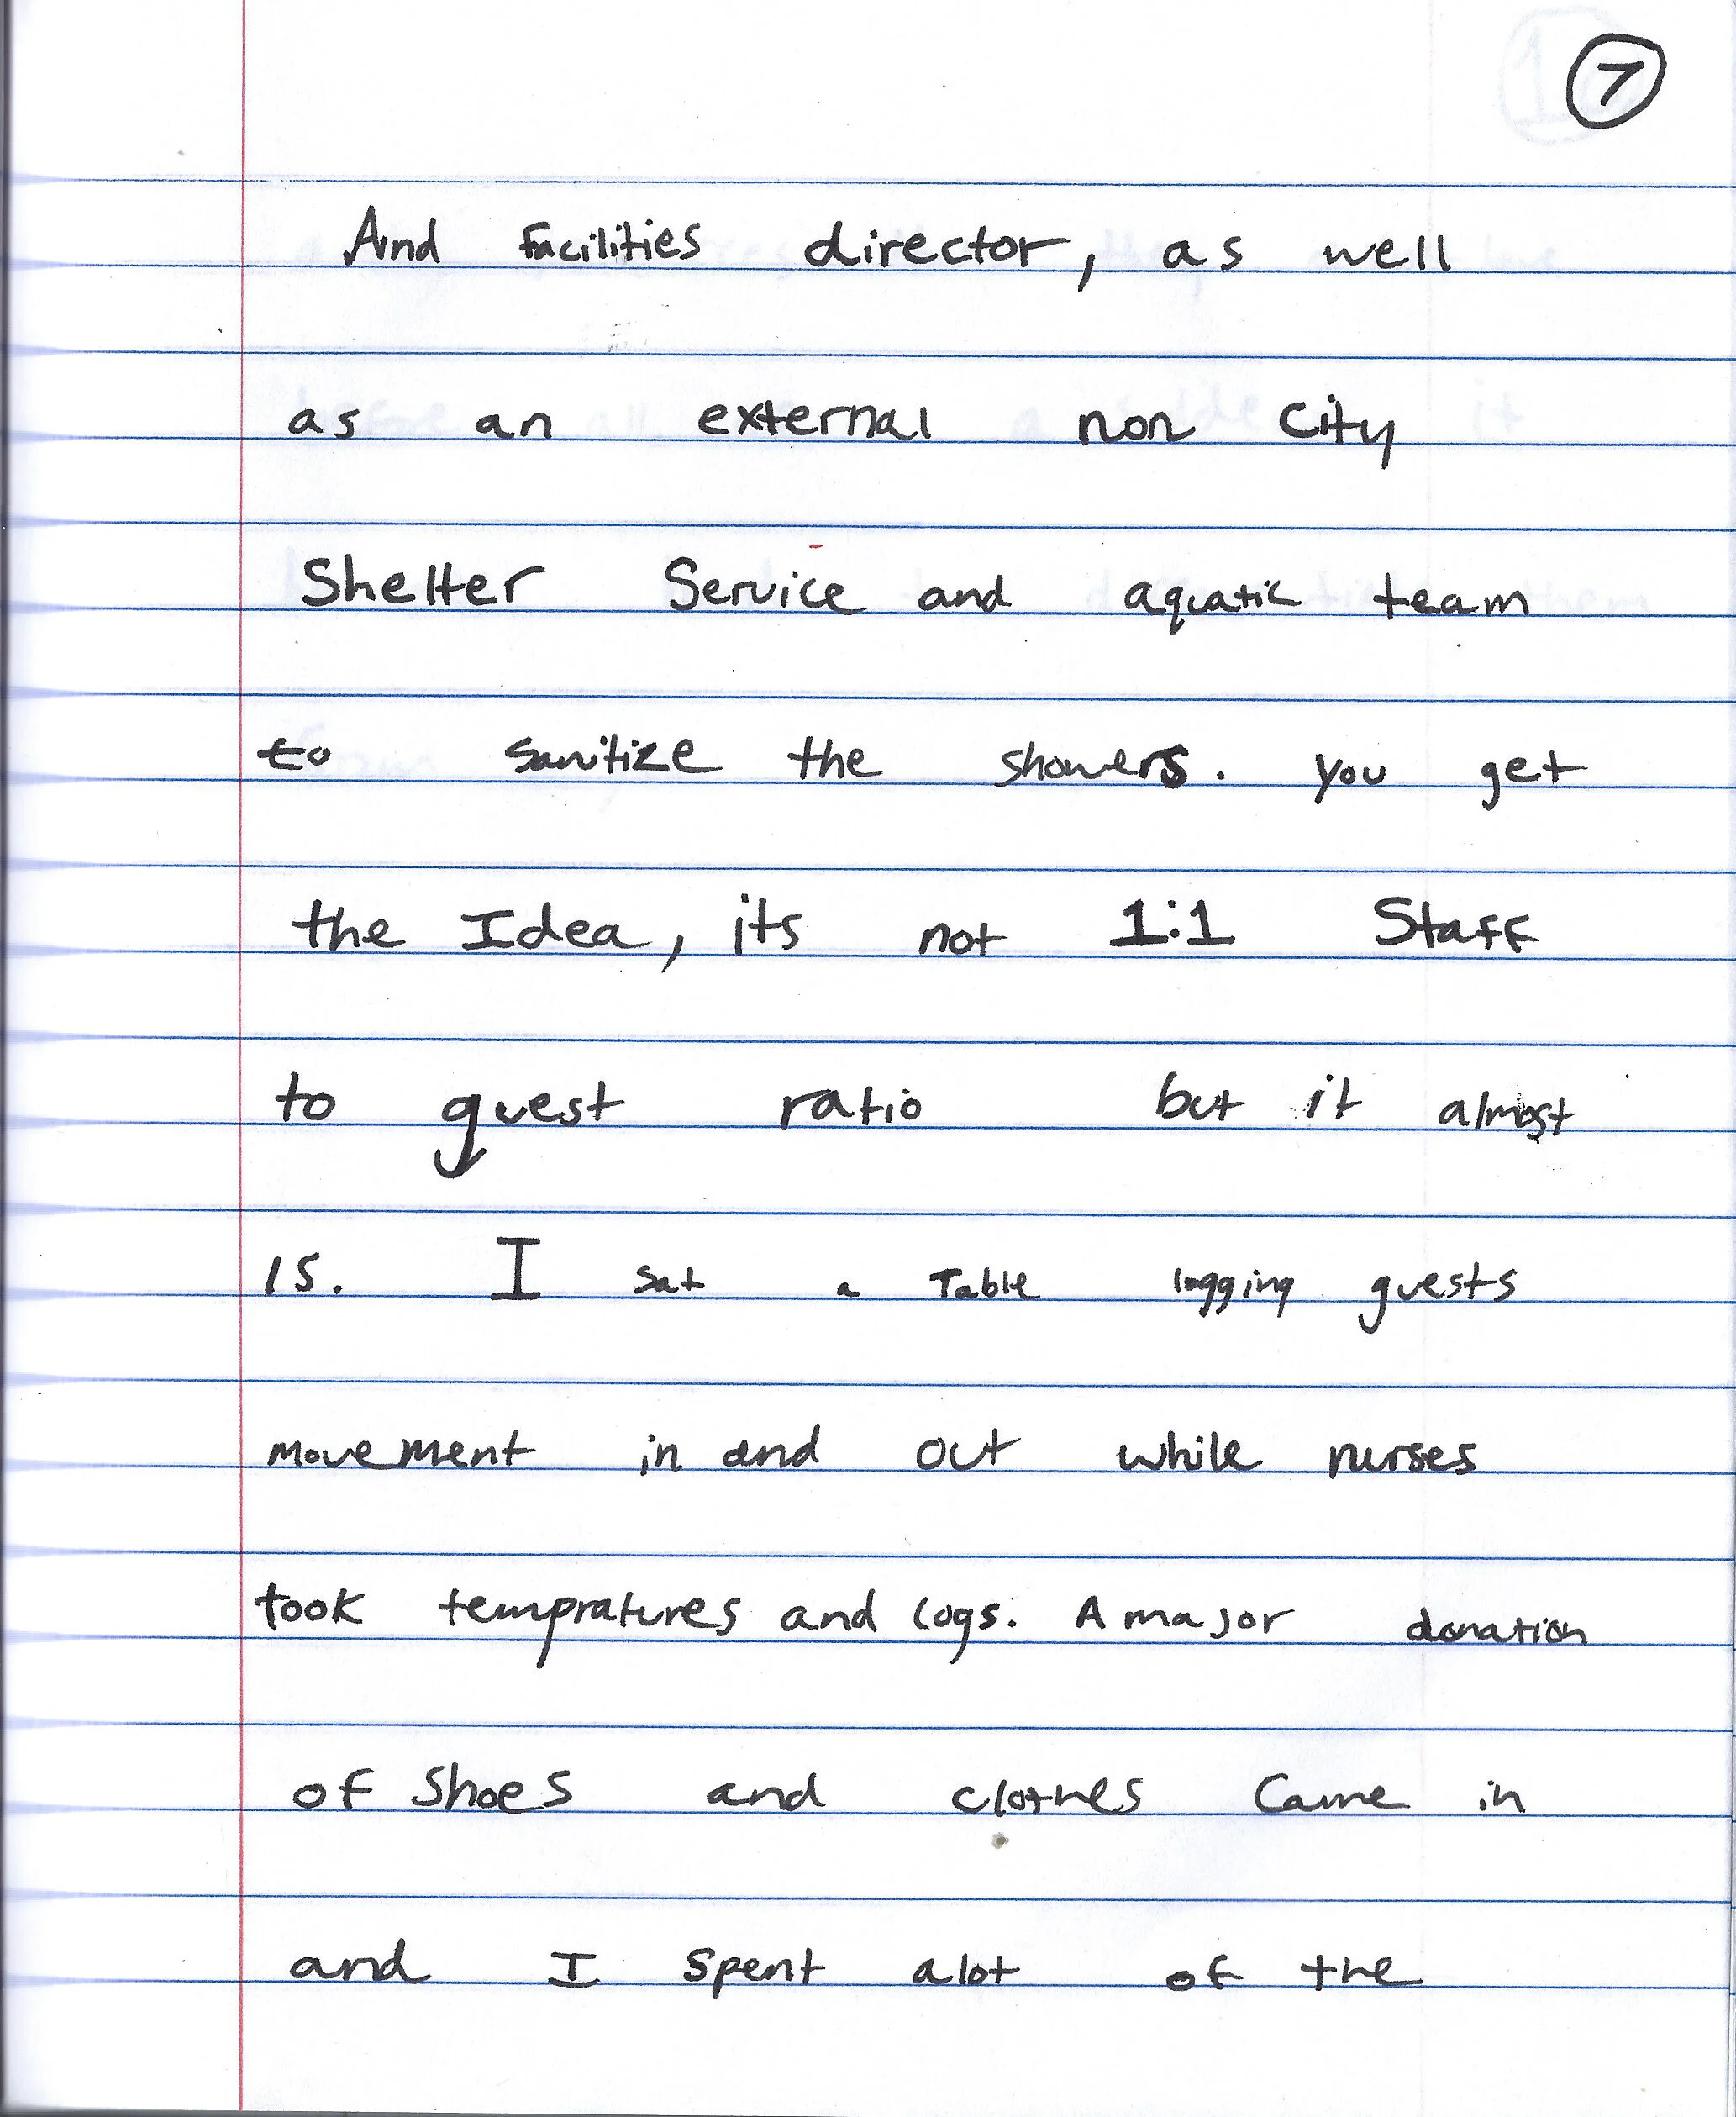 7
And facilities director, as well
as an external non City
Shelter Service and aquatic team
to sanitize the showers. you get
the Idea, its not 1:1 Staff
to guest ratio but it almost
is. I sat a Table logging guests
movement in and out while nurses
took tempratures and logs. A major donation
of Shoes and clothes Came in
and I spent alot of the